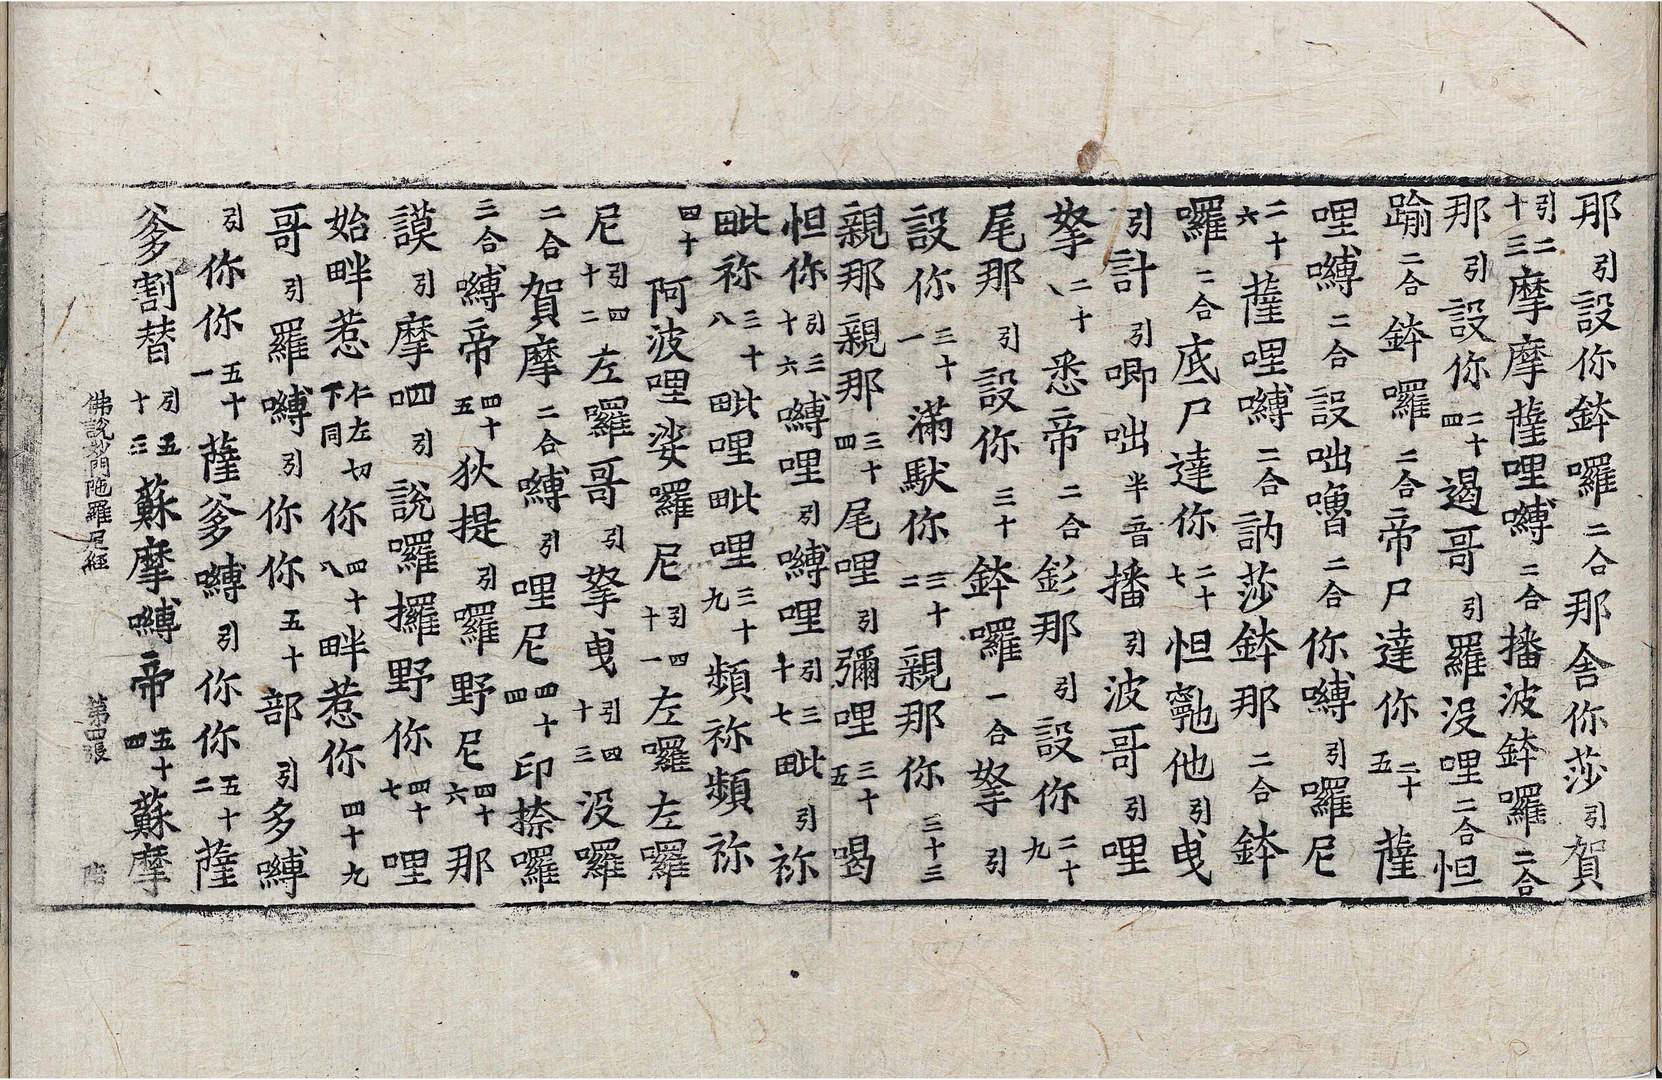 那引設你鉢囉二合那舍你莎引賀
引二十三摩摩薩哩嚩二合播波鉢囉二合
那引設你二十四遏哥引羅沒哩二合怛
踰二合鉢囉二合帝尸達你二十五薩
哩嚩二合設咄嚕二合你嚩引囉尼
二十六薩哩嚩二合訥莎鉢那二合鉢
囉二合底尸達你二十七怛𩕳他引曳
引計引唧咄半音播引波哥引哩
拏二十八悉帝二合彭那引設你二十九
尾那引設你三十鉢囉二合拏引
設你三十一滿馱你三十二親那你三十三
親那親那三十四尾哩引彌哩三十五喝
怛你引三十六嚩哩引嚩哩引三十七毗引祢
毗祢三十八毗哩毗哩三十九頻祢頻祢
四十阿波哩娑囉尼引四十一左囉左囉
尼引四十二左囉哥引拏曳引四十三沒囉
二合賀摩二合嚩引哩尼四十四印捺囉
二合嚩帝四十五狄提引囉野尼四十六那
謨引摩呬引說囉攞野你四十七哩
始畔惹仁左切下同你四十八畔惹你四十九
哥引羅嚩引你你五十部引多嚩
引你你五十一薩爹嚩引你你五十二薩
爹割替引五十三蘇摩嚩帝五十四蘇摩
佛說妙門陁羅尼經 第四張 階